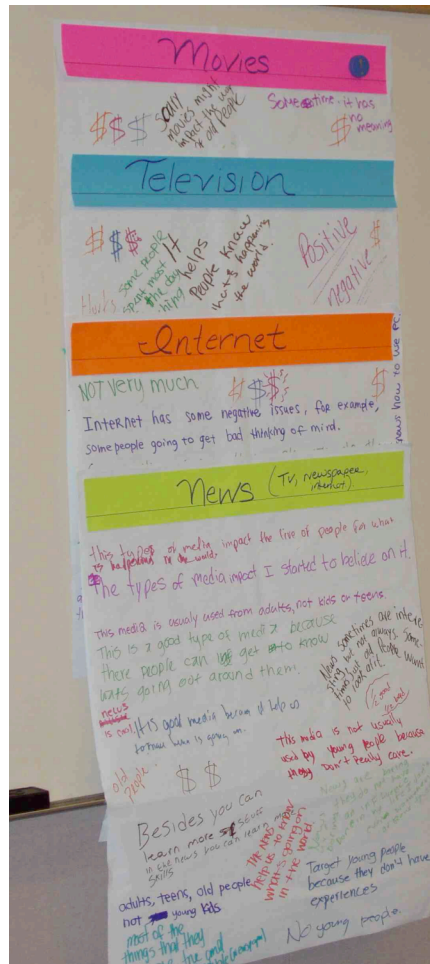 Movies
$$$
scary
movies might
impact the way
of old People
Sometime it has
no meaning
$
Television
$$$
some people
spent most
the day
It
helps
People know
what's happening
the world.
Positive
negative
$
Internet
NOT very much
$$$
$
Internet has some negative issues, for example,
some people going to get bad thinking of mind.
news how to we
News (TV, newspaper,
internet)
this types of media impact the live of people for what
is happening in the world.
The types of media impact I started to believe on it.
This media is usualy used from adults, not kids or teens.
This is a good type of media because
there people can get to know
wats going out around them.
News sometimes are intere-
sting but not always. Some-
times just old People want
to look at it.
news
is cool.
It is good media becaus it help us
to know how is going on.
1/2 good
1/2 bad
this media is not usually
used by young people because
they Don't Really care.
old
People
$ $
Besides you can
learn more
in the news you can learn more
skills
The news
help us to know
what's going on
in the world.
adults, teens, old people
not young kids
Target young people
because they don't have
experiences
most of the
things that they
No young people.